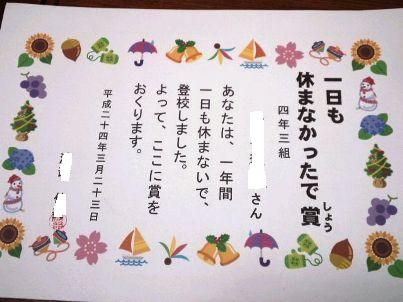 一日も
休まなかったで賞
しょう
四年三組
さん
あなたは、一年間
一日も休まないで、
登校しました。
よって、ここに賞を
おくります。
平成二十四年三月二十三日